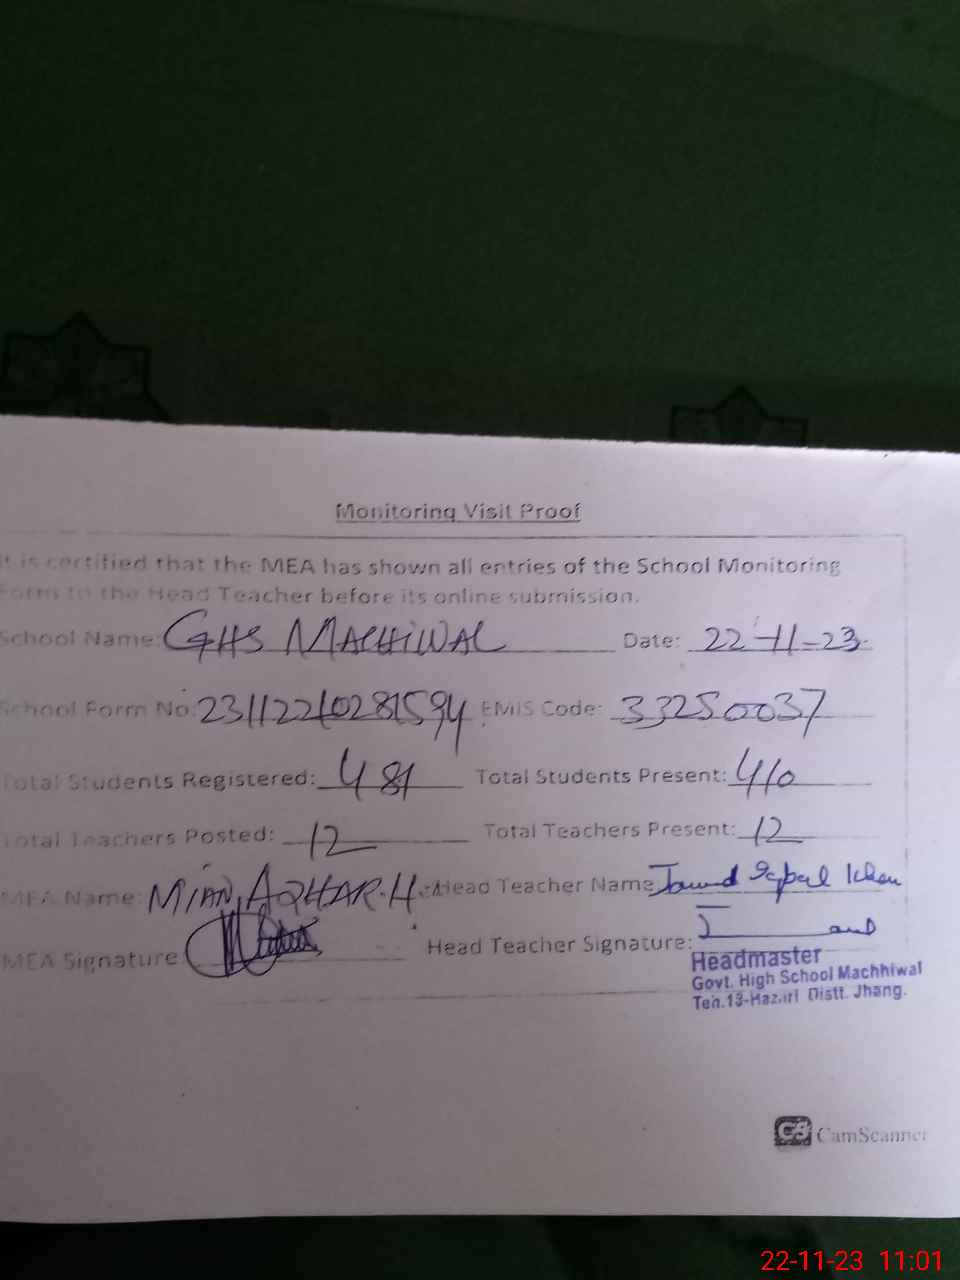 Monitoring Visit Proof
It is certified that the MEA has shown all entries of the School Monitoring
Form to the Head Teacher before its online submission.
School Name: GHS MACHIWAL Date: 22-11-23
School Form No: EMIS Code: 33250037
Total Students Registered: 481 Total Students Present: 410
Total Teachers Posted: 12 Total Teachers Present: 12
MEA Name: MIAN AZHAR.H Head Teacher Name Iqbal Khan
MEA Signature Head Teacher Signature:
Headmaster
Govt. High School Machhiwal
Teh.18-Hazari Distt. Jhang.
CS CamScanner
22-11-23 11:01